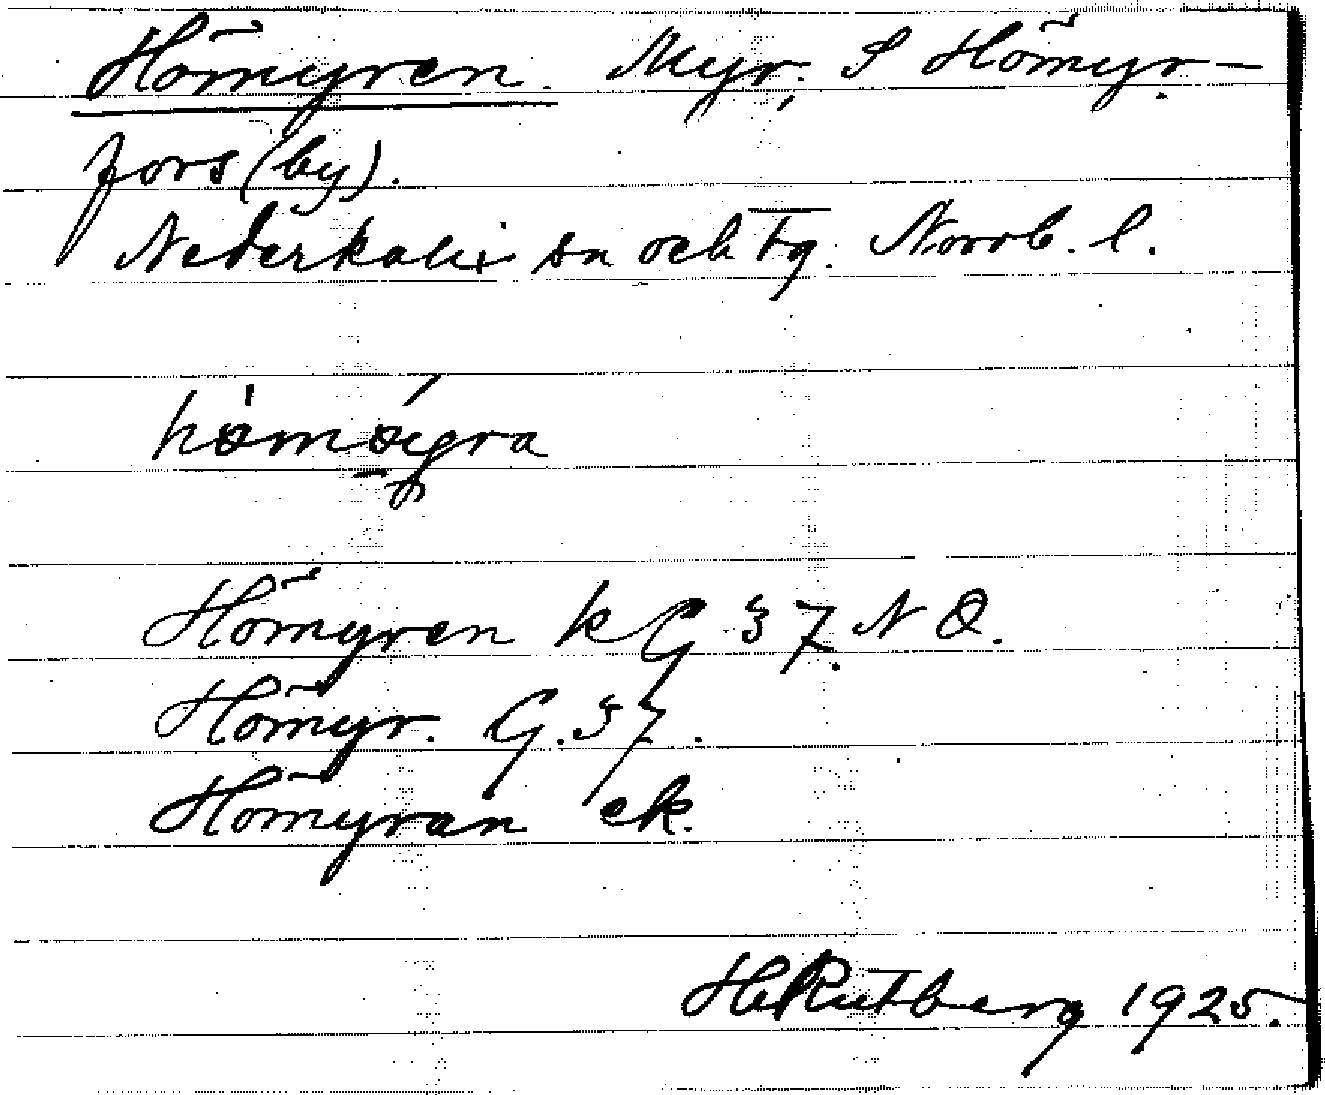 Hömyren. Myr, S Hömyr-
fors (by).
Nederkalix sn och tg. Norrb. l.
Hömyren k G 37. N O.
Hömyr. G. 37.
Hömyran ek.
H. Rutberg 1925.